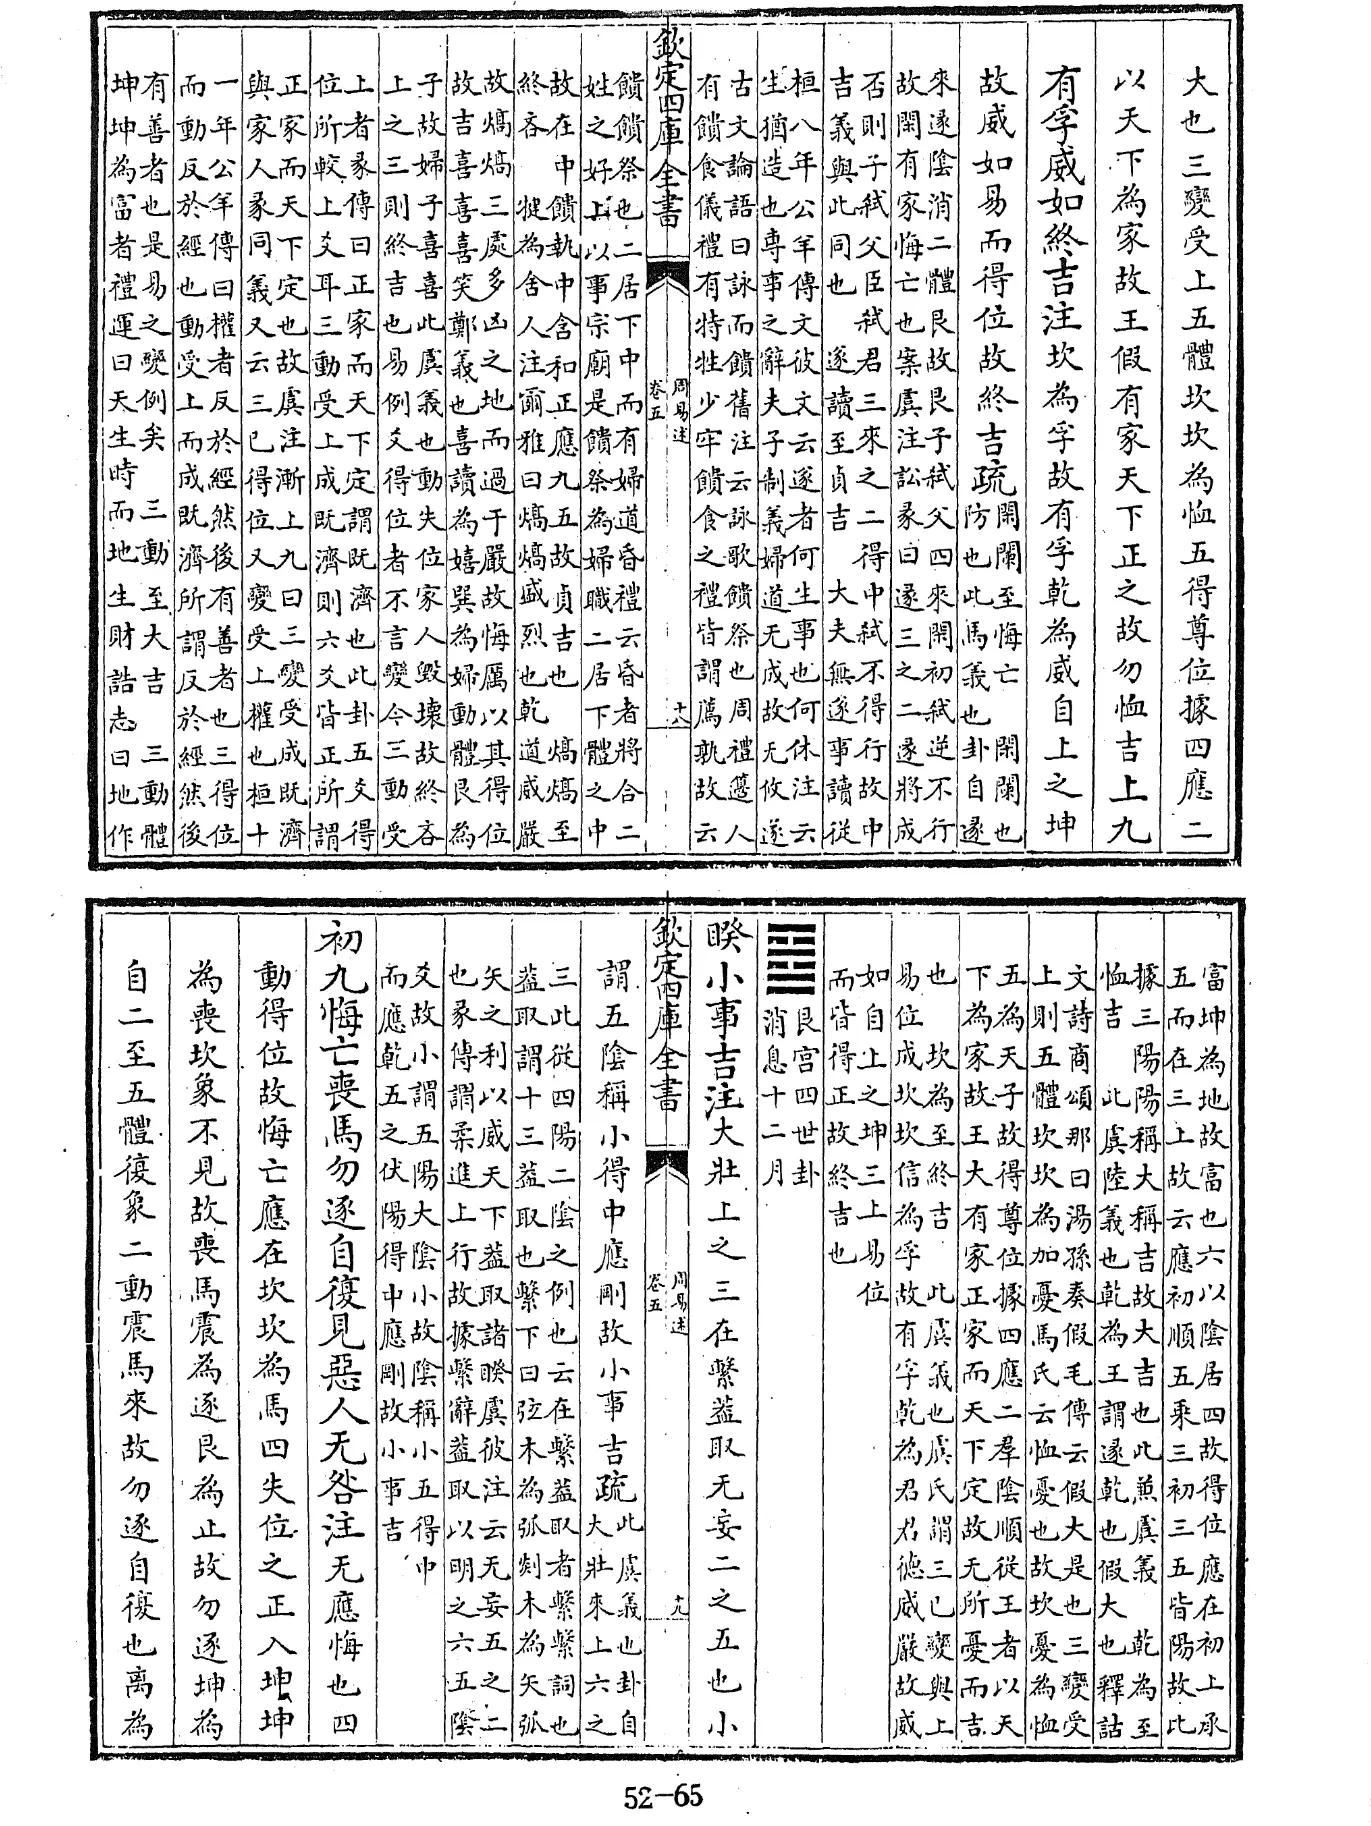 大也三變受上五體坎坎為恤五得尊位據四應二
以天下為家故王假有家天下正之故勿恤吉上九
有孚威如終吉注坎為孚故有孚乾為威自上之坤
故威如易而得位故終吉疏閑闌至悔亡 閑闌也
防也此馬義也卦自遂
來遂陰消二體艮故艮子弒父四來閑初弒逆不行
故閑有家悔亡也案虞注訟彖曰遂三之二遂將成
否則子弒父臣弒君三來之二得中弒不得行故中
吉義與此同也 遂讀至貞吉 大夫無遂事讀從
桓八年公羊傳文彼文云遂者何生事也何休注云
生猶造也專事之辭夫子制義婦道无成故无攸遂
古文論語曰詠而饋舊注云詠歌饋祭也周禮籩人
有饋食儀禮有特牲少牢饋食之禮皆謂薦孰故云
欽定四庫全書
周易述
卷五
十八
饋饋祭也二居下中而有婦道昏禮云昏者將合二
姓之好上以事宗廟是饋祭為婦職二居下體之中
故在中饋執中含和正應九五故貞吉也 熇熇至
終吝 揵為舍人注爾雅曰熇熇盛烈也乾道威嚴
故熇熇三處多凶之地而過于嚴故悔厲以其得位
故吉喜喜喜笑鄭義也喜讀為嬉巽為婦動體艮為
子故婦子喜喜此虞義也動失位家人毀壞故終吝
上之三則終吉也易例爻得位者不言變今三動受
上者彖傳曰正家而天下定謂既濟也此卦五爻得
位所較上爻耳三動受上成既濟則六爻皆正所謂
正家而天下定也故虞注漸上九曰三變受成既濟
與家人彖同義又云三已得位又變受上權也桓十
一年公羊傳曰權者反於經然後有善者也三得位
而動反於經也動受上而成既濟所謂反於經然後
有善者也是易之變例矣 三動至大吉 三動體
坤坤為富者禮運曰天生時而地生財誥志曰地作
富坤為地故富也六以陰居四故得位應在初上承
五而在三上故云應初順五乘三初三五皆陽故此
據三陽陽稱大稱吉故大吉也此兼虞義 乾為至
恤吉 此虞陸義也乾為王謂遂乾也假大也釋詁
文詩商頌那曰湯孫奏假毛傳云假大是也三變受
上則五體坎坎為加憂馬氏云恤憂也故坎憂為恤
五為天子故得尊位據四應二羣陰順從王者以天
下為家故王大有家正家而天下定故无所憂而吉
也 坎為至終吉 此虞義也虞氏謂三已變與上
易位成坎坎信為孚故有孚乾為君君德威嚴故威
如自上之坤三上易位
而皆得正故終吉也
艮宮四世卦
消息十二月
睽小事吉注大壯上之三在繫葢取无妄二之五也小
欽定四庫全書
周易述
卷五
十九
謂五陰稱小得中應剛故小事吉疏此虞義也卦自
大壯來上六之
三此從四陽二陰之例也云在繫葢取者繫繫詞也
葢取謂十三葢取也繫下曰弦木為弧剡木為矢弧
矢之利以威天下葢取諸睽虞彼注云无妄五之二
也彖傳謂柔進上行故據繫辭葢取以明之六五陰
爻故小謂五陽大陰小故陰稱小五得中
而應乾五之伏陽得中應剛故小事吉
初九悔亡喪馬勿逐自復見惡人无咎注无應悔也四
動得位故悔亡應在坎坎為馬四失位之正入坤坤
為喪坎象不見故喪馬震為逐艮為止故勿逐坤為
自二至五體復象二動震馬來故勿逐自復也離為
52-65